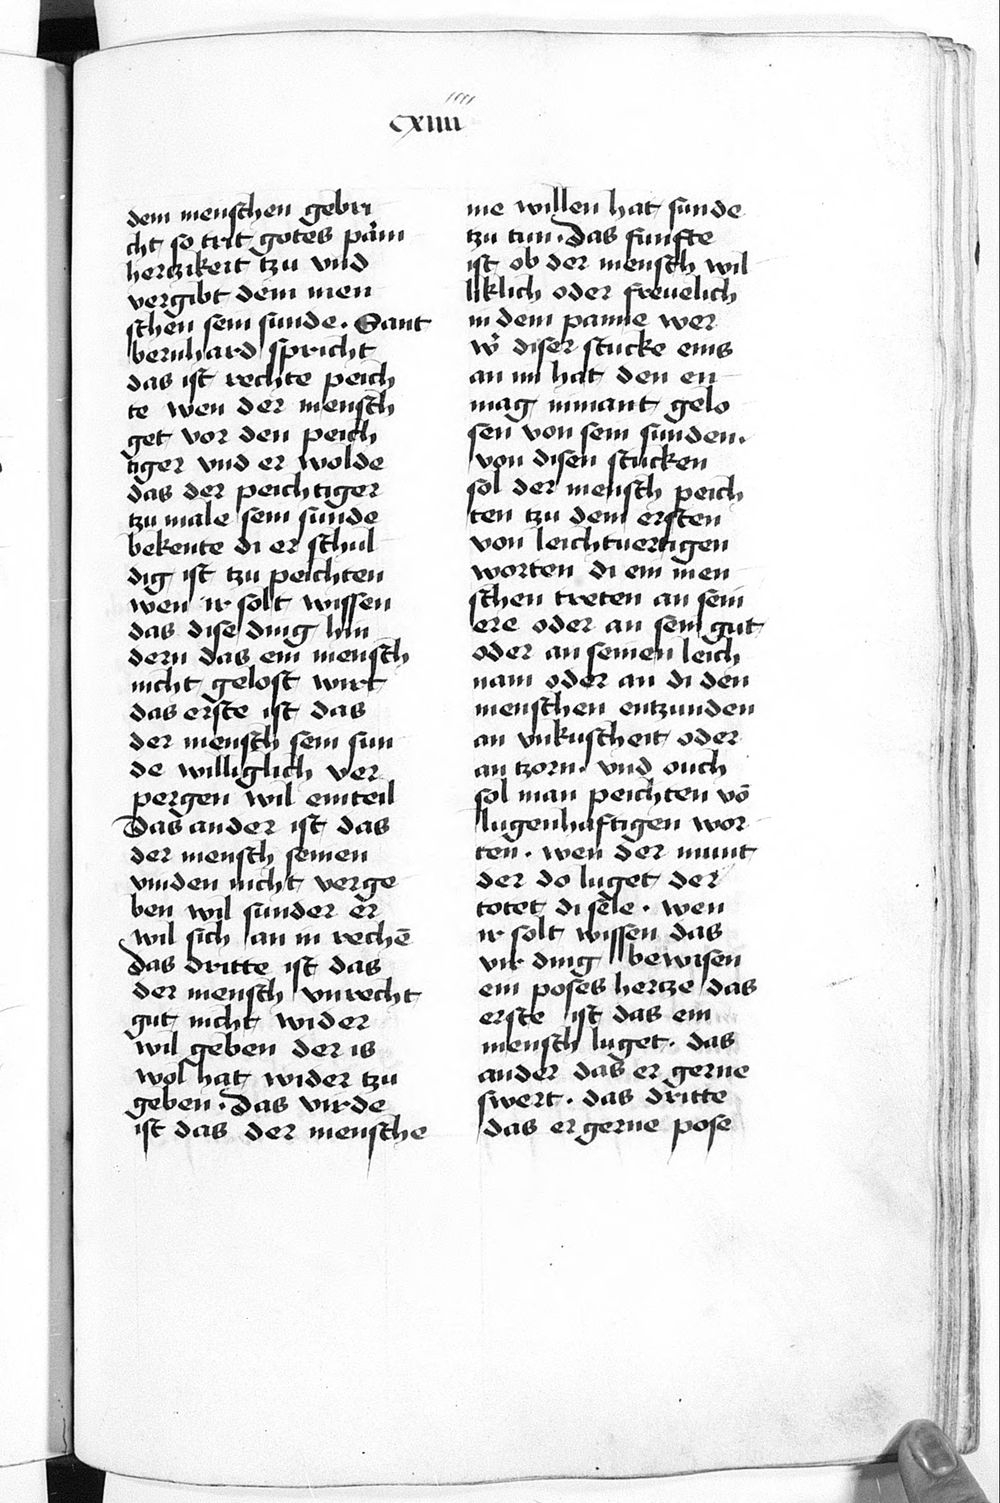 cxiiii
dem menschen gebri
cht so trit gotes parm
herczikeit tzu vnd
vergibt dem men
schen sein sunde. Sant
bernhard spricht
das ist rechte peich
te wen der mensch
get vor den peich
tiger vnd er wolde
das der peichtiger
tzu male sein sunde
bekente di er schul
dig ist tzu peichten
wen ir solt wissen
das dise ding hin
dern das ein mensch
nicht gelost wirt
das erste ist das
der mensch sein sun
de williglich ver
pergen wil einteil
Das ander ist das
der mensch seinen
vinden nicht verge
ben wil sunder er
wil sich an in rechē
das dritte ist das
der mensch vnrecht
gut nicht wider
wil geben der is
wol hat wider tzu
geben. Das virde
ist das der mensche
ine willen hat sunde
tzu tun. Das funfte
ist ob der mensch wil
liklich oder freuelich
in dem panne wer
diser stucke eins
an im hat den en
mag nimant gelo
sen von sein sunden.
von disen stucken
sol der mensch peich
ten tzu dem ersten
von leichtuertigen
worten di ein men
schen treten an sein
ere oder an sein gut
oder an seinen leich
nam oder an di den
menschen entzunden
an vnkuscheit oder
an tzorn. vnd ouch
sol man peichten vō
lugenhaftigen wor
ten. wen der munt
der do luget der
totet di sele. wen
ir solt wissen das
vir ding bewisen
ein poses hertze das
erste ist das ein
mensch luget. das
ander das er gerne
swert. das dritte
das er gerne pose